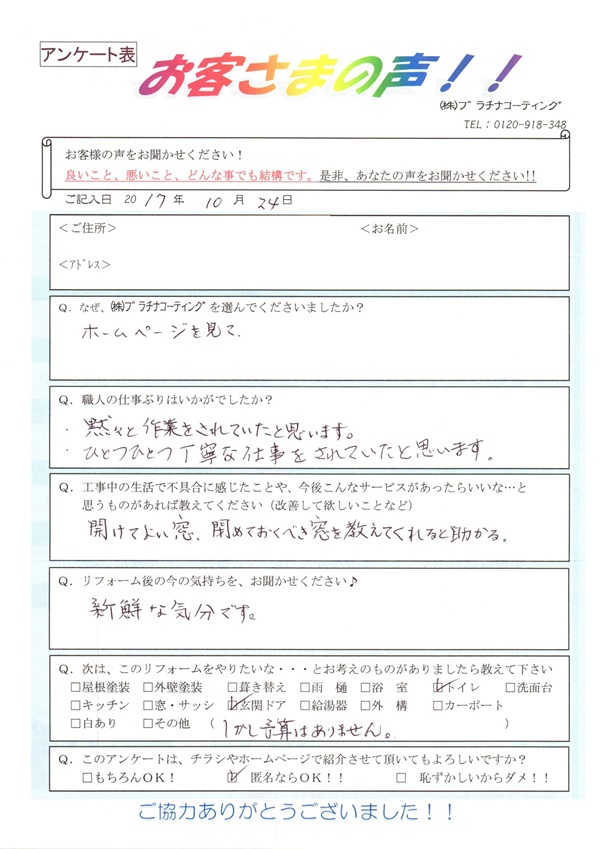 アンケート表
お客さまの声！！
㈱プラチナコーティング
TEL：0120-918-348
お客様の声をお聞かせください！
良いこと、悪いこと、どんな事でも結構です。是非、あなたの声をお聞かせください!!
ご記入日 2017年 10月 24日
＜ご住所＞ ＜お名前＞
＜アドレス＞
Q．なぜ、㈱プラチナコーティングを選んでくださいましたか？
ホームページを見て.
Q．職人の仕事ぶりはいかがでしたか？
・黙々と作業をされていたと思います。
・ひとつひとつ丁寧な仕事をされていたと思います。
Q．工事中の生活で不具合に感じたことや、今後こんなサービスがあったらいいな…と
思うものがあれば教えてください（改善して欲しいことなど）
開けてよい窓、閉めておくべき窓を教えてくれると助かる。
Q．リフォーム後の今の気持ちを、お聞かせください♪
新鮮な気分です。
Q．次は、このリフォームをやりたいな・・・とお考えのものがありましたら教えて下さい
□屋根塗装 □外壁塗装 □葺き替え □雨 樋 □浴 室 ☑トイレ □洗面台
□キッチン □窓・サッシ ☑玄関ドア □給湯器 □外 構 □カーポート
□白あり □その他 （ しかし予算はありません。 ）
Q．このアンケートは、チラシやホームページで紹介させて頂いてもよろしいですか？
□もちろんOK！ ☑ 匿名ならOK！！ □ 恥ずかしいからダメ！！
ご協力ありがとうございました！！